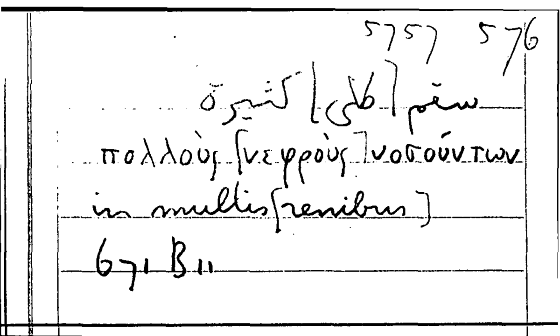 5757 576
[كلى] كثيرة
πολλοὺς [νεφροὺς] νοσούντων
in multis [renibus]
671 B 11